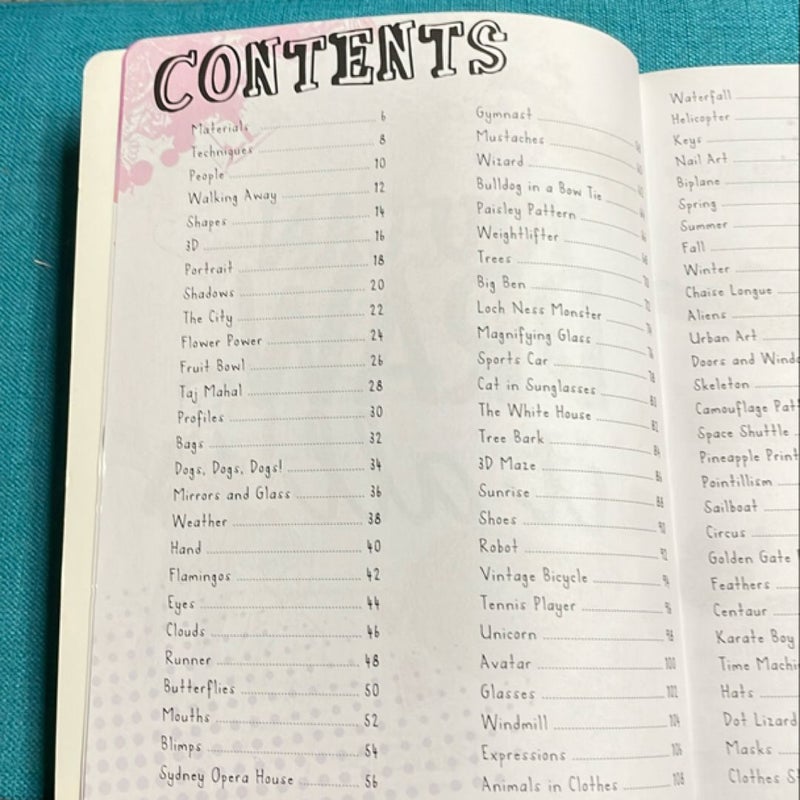 CONTENTS
Materials 6
Techniques 8
People 10
Walking Away 12
Shapes 14
3D 16
Portrait 18
Shadows 20
The City 22
Flower Power 24
Fruit Bowl 26
Taj Mahal 28
Profiles 30
Bags 32
Dogs, Dogs, Dogs! 34
Mirrors and Glass 36
Weather 38
Hand 40
Flamingos 42
Eyes 44
Clouds 46
Runner 48
Butterflies 50
Mouths 52
Blimps 54
Sydney Opera House 56
Gymnast 58
Mustaches 60
Wizard 62
Bulldog in a Bow Tie 64
Paisley Pattern 66
Weightlifter 68
Trees 70
Big Ben 72
Loch Ness Monster 74
Magnifying Glass 76
Sports Car 78
Cat in Sunglasses 80
The White House 82
Tree Bark 84
3D Maze 86
Sunrise 88
Shoes 90
Robot 92
Vintage Bicycle 94
Tennis Player 96
Unicorn 98
Avatar 100
Glasses 102
Windmill 104
Expressions 106
Animals in Clothes 108
Waterfall
Helicopter
Keys
Nail Art
Biplane
Spring
Summer
Fall
Winter
Chaise Longue
Aliens
Urban Art
Doors and
Skeleton
Camouflage
Space Shuttle
Pineapple Print
Pointillism
Sailboat
Circus
Golden Gate
Feathers
Centaur
Karate Boy
Time
Hats
Dot Lizard
Masks
Clothes